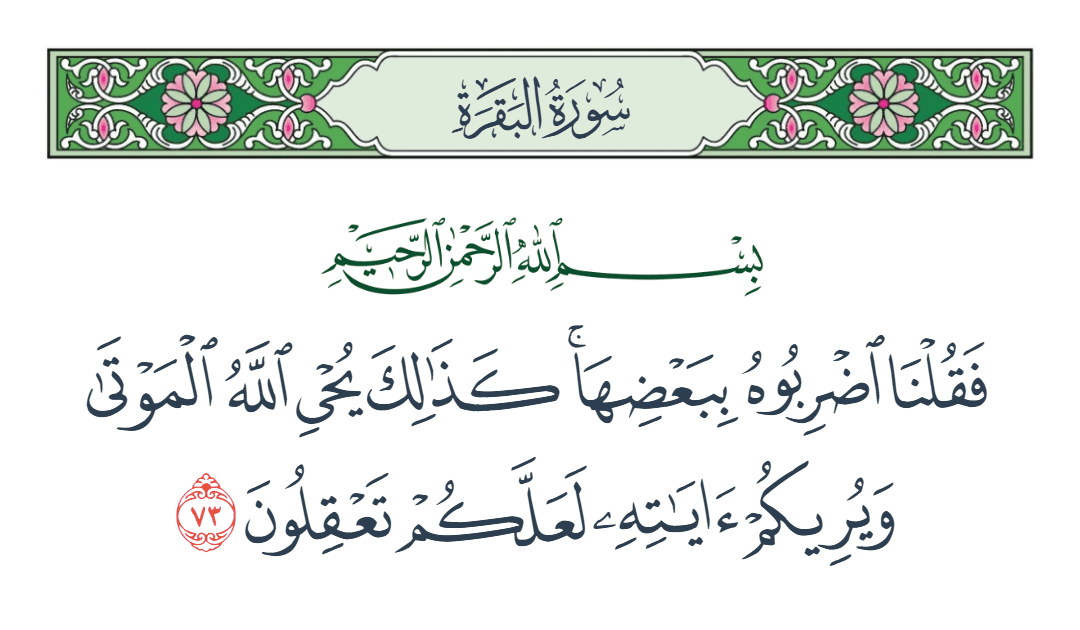 سُورَةُ البَقَرَةِ
بِسْمِ ٱللَّهِ ٱلرَّحْمَٰنِ ٱلرَّحِيمِ
فَقُلْنَا ٱضْرِبُوهُ بِبَعْضِهَاۚ كَذَٰلِكَ يُحْيِ ٱللَّهُ ٱلْمَوْتَىٰ
وَيُرِيكُمْ ءَايَٰتِهِۦ لَعَلَّكُمْ تَعْقِلُونَ ٧٣